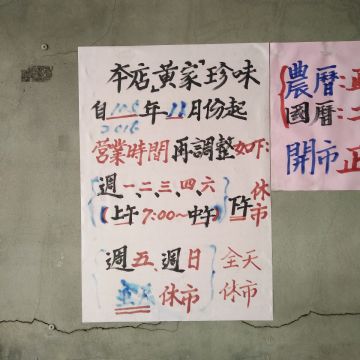 本店「黃家」珍味
自105年11月份起
2016
營業時間再調整如下:
週一、二、三、四、六
(上午7:00~中午)下午休市
週五、週日全天
休市 休市
農曆:正
國曆:二
開市正